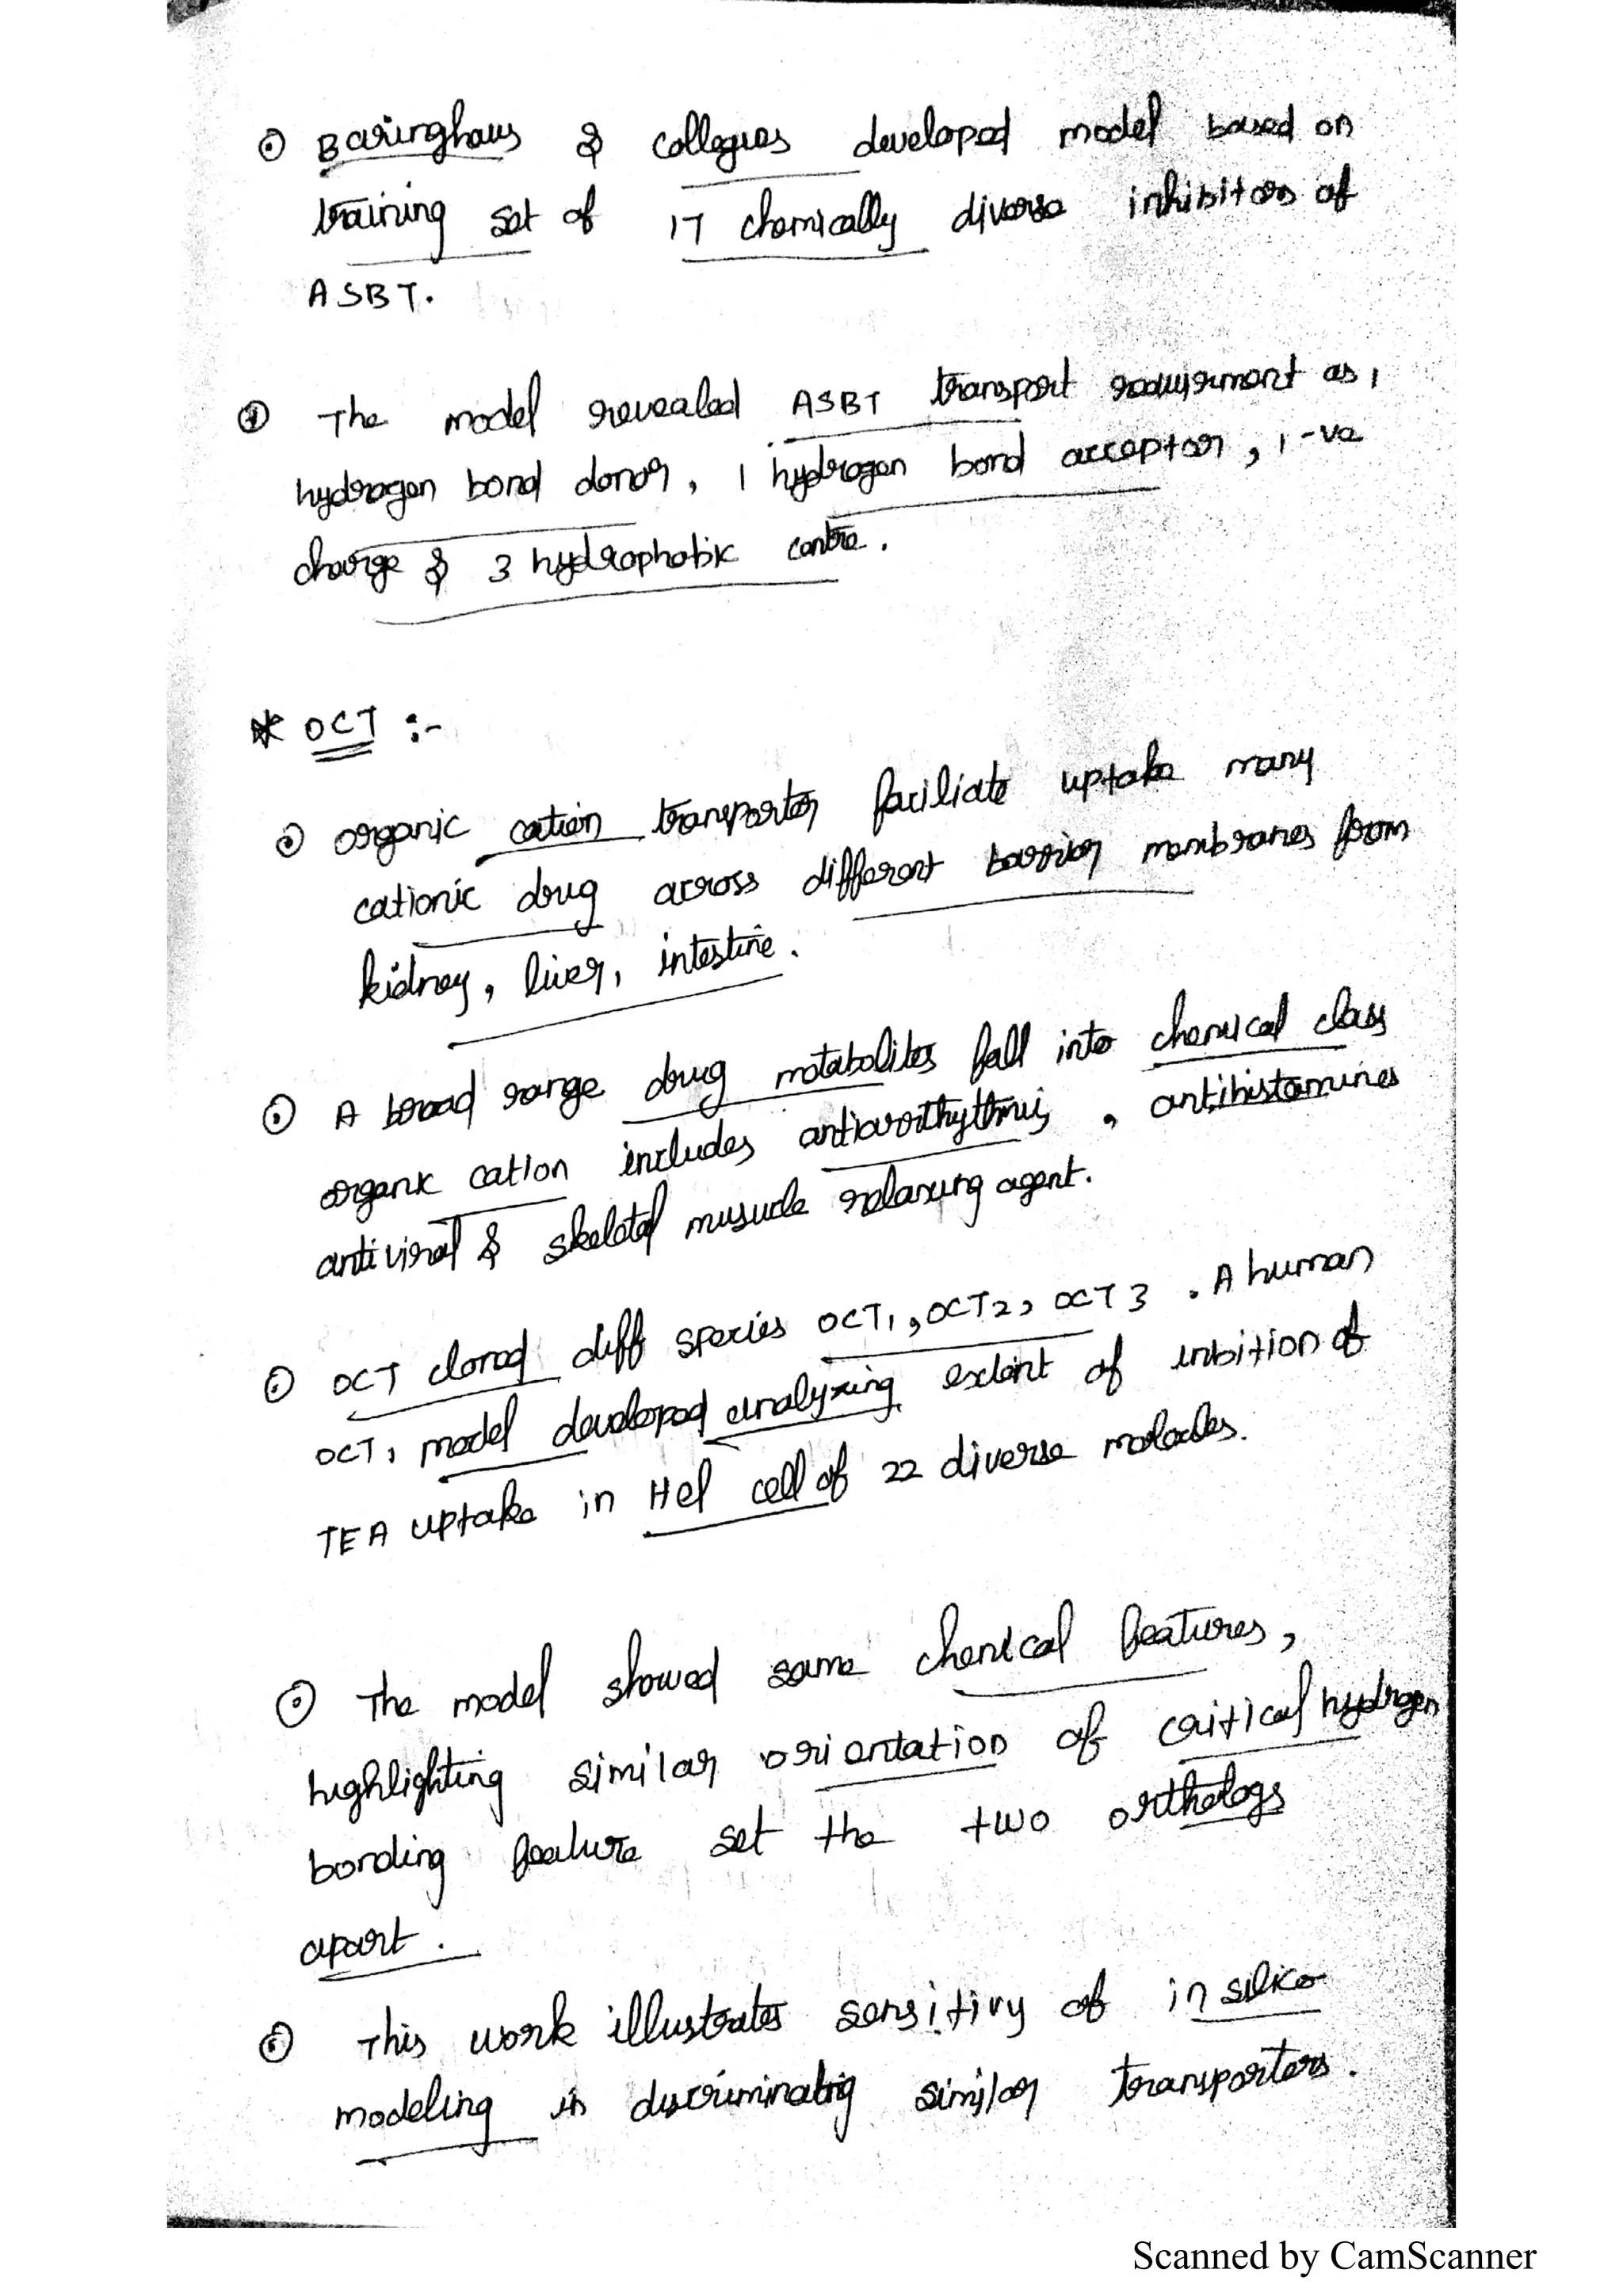 ⊙ Baringhaus & collegues developed model based on
training set of 17 chemically diverse inhibitors of
ASBT.
⊙ The model revealed ASBT transport requirment as 1
hydrogen bond donor, 1 hydrogen bond acceptor, 1 -ve
charge & 3 hydrophobic centre.
* OCT :-
⊙ organic cation transporter faciliate uptake many
cationic drug across different barrier membranes from
kidney, liver, intestine.
⊙ A broad range drug metabolites fall into chemical class
organic cation includes antiarrhythmis, antihistamines
antiviral & skeletal musucle relaxing agent.
⊙ OCT cloned diff species OCT1, OCT2, OCT3. A human
OCT1 model developed analyzing extent of inbition of
TEA uptake in Hel cell of 22 diverse molecules.
⊙ The model showed same chemical features,
highlighting similar orientation of critical hydrogen
bonding feature set the two orthologs
apart.
⊙ This work illustrates sensitivy of in silico
modeling in discriminating similar transporters.
Scanned by CamScanner